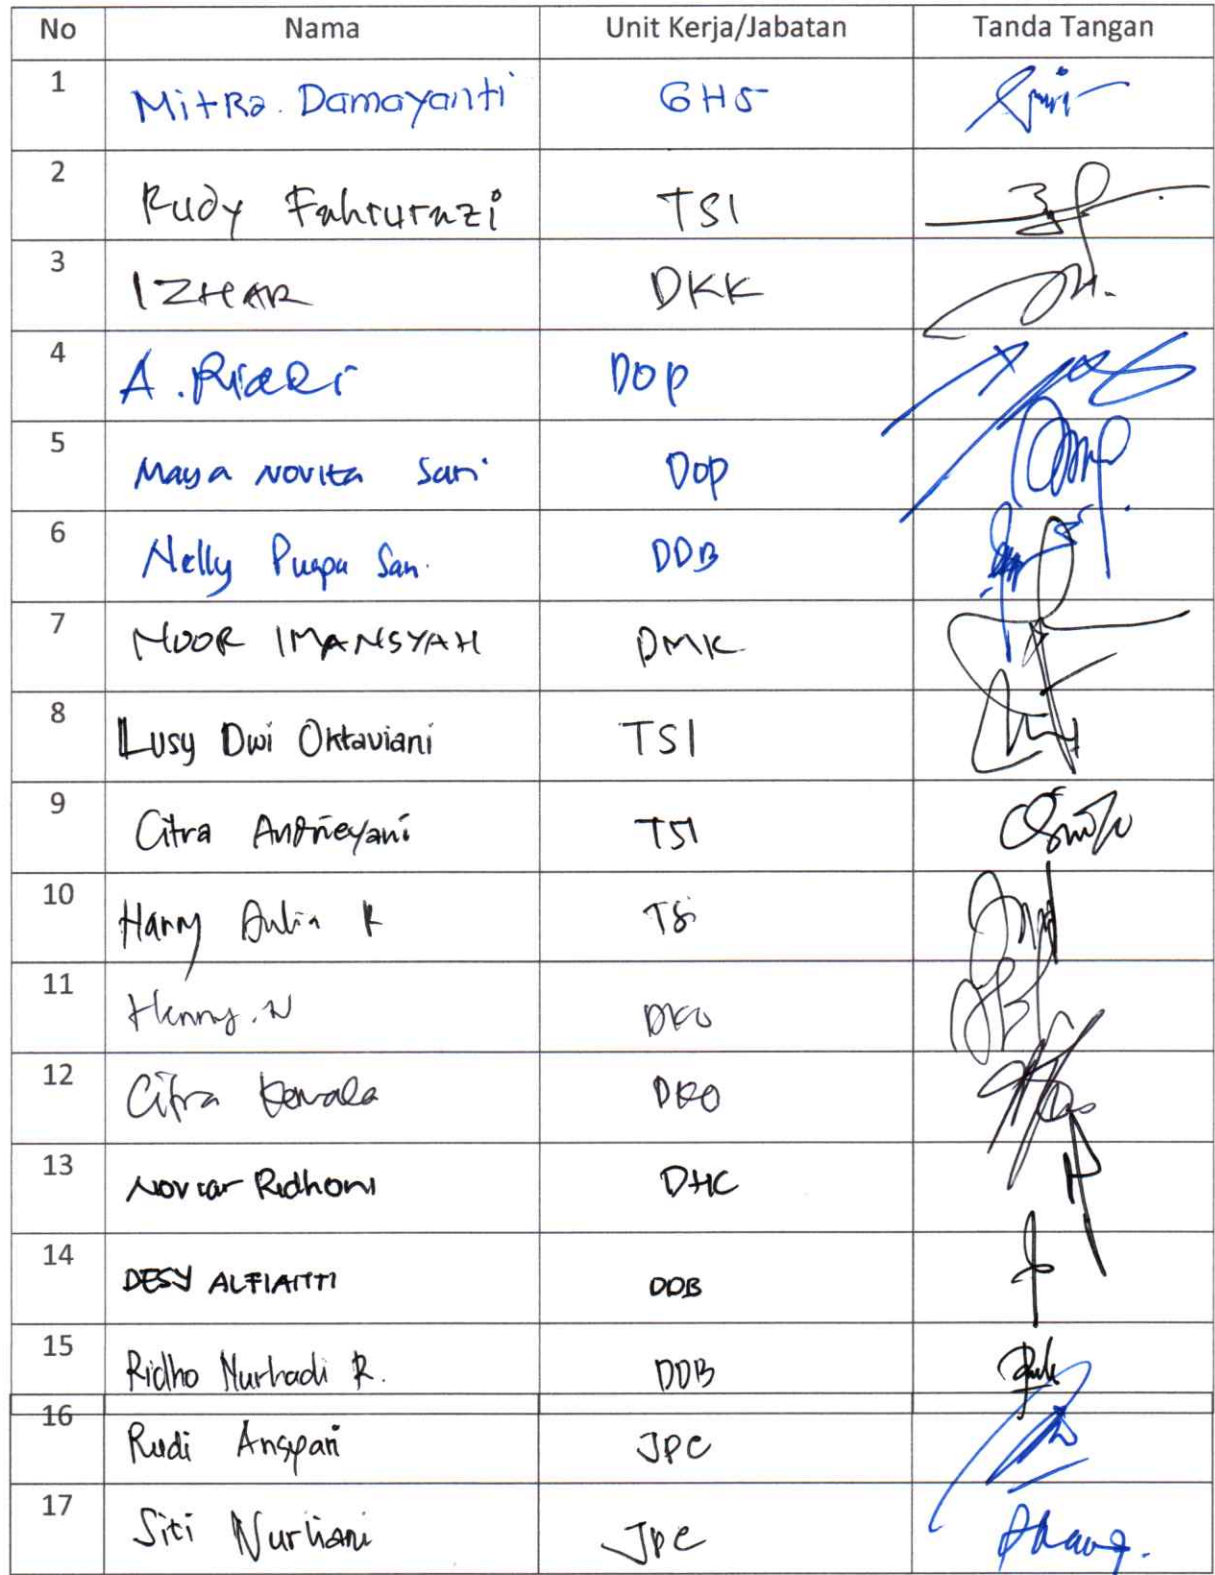 No Nama Unit Kerja/Jabatan Tanda Tangan
1 Mitra. Damayanti GHS
2 Rudy Fahrurazi TSI
3 IZHAR DKK
4 A. DOP
5 Maya Novita Sari DOP
6 Nelly Puspa Sari DDB
7 NOOR IMANSYAH DMK
8 Lusy Dwi Oktaviani TSI
9 Citra Andrieyani TSI
10 Hanny Aulia R TSI
11 Henny. N DKO
12 Citra Kemala DKO
13 Noviar Ridhoni DHC
14 DESY ALFIANTI DDB
15 Ridho Nurhadi R. DDB
16 Rudi Ansyari JPC
17 Siti Nurliani JPC